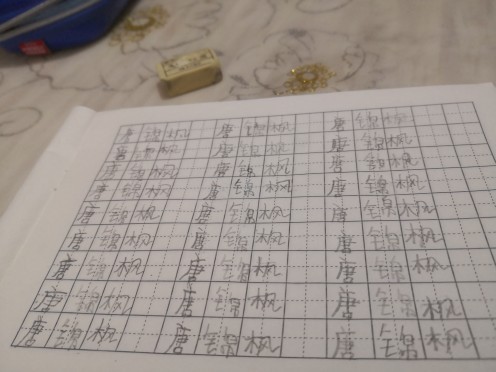 唐锦枫 唐锦枫 唐锦枫
唐锦枫 唐锦枫 唐锦枫
唐锦枫 唐锦枫 唐锦枫
唐锦枫 唐锦枫 唐锦枫
唐锦枫 唐锦枫 唐锦枫
唐锦枫 唐锦枫 唐锦枫
唐锦枫 唐锦枫 唐锦枫
唐锦枫 唐锦枫 唐锦枫
唐锦枫 唐锦枫 唐锦枫